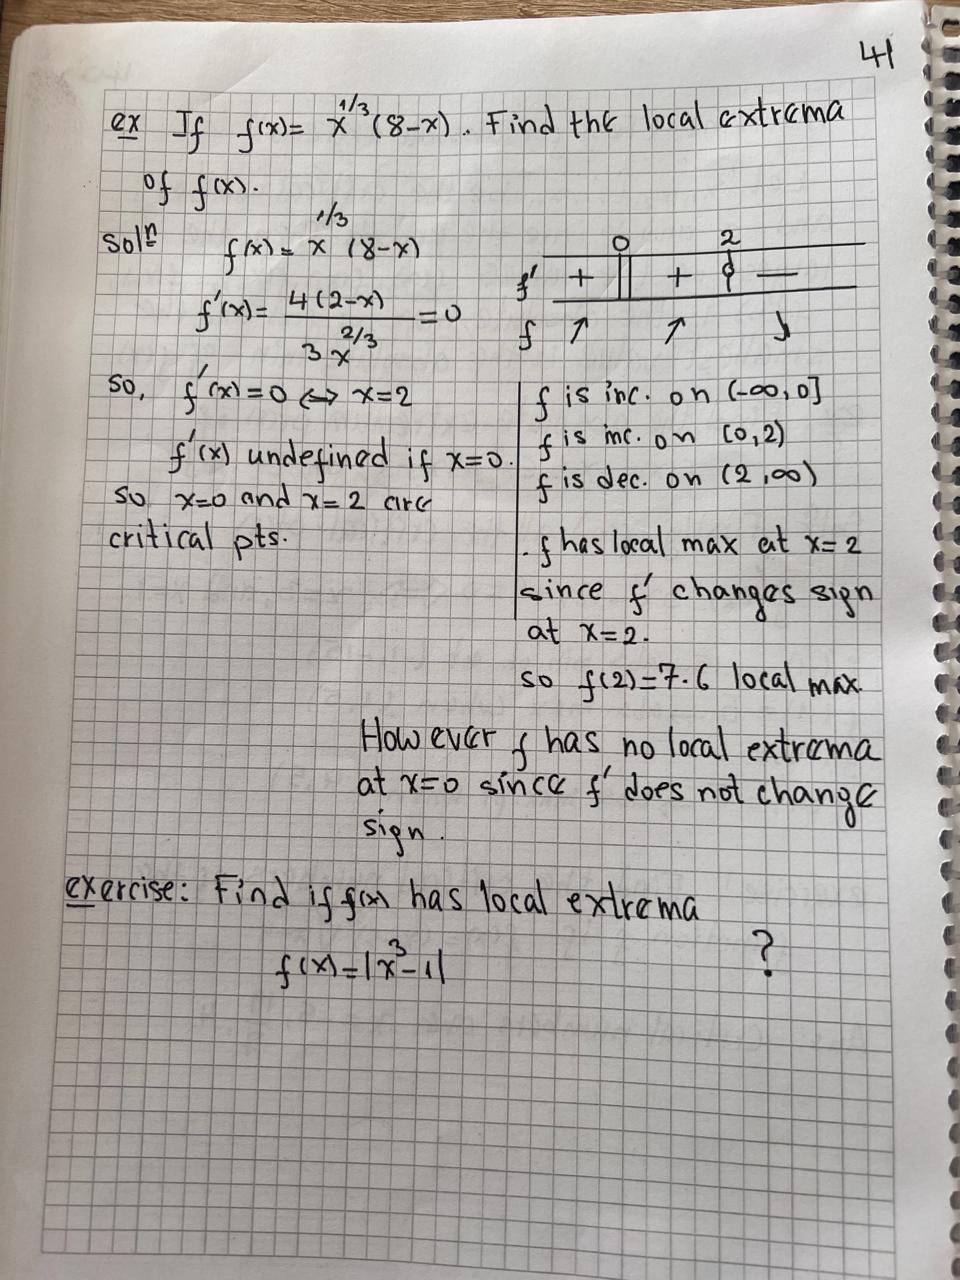 41
ex If f(x)= x^1/3 (8-x). Find the local extrema
of f(x).
soln f(x)= x^1/3 (8-x)
f'(x)= 4(2-x) / 3x^2/3 =0
0 2
f' + + —
f ↑ ↑ ↓
so, f'(x)=0 ↔ x=2
f'(x) undefined if x=0.
so x=0 and x=2 are
critical pts.
f is inc. on (-∞,0]
f is inc. on [0,2)
f is dec. on (2,∞)
. f has local max at x=2
since f' changes sign
at x=2.
so f(2)=7.6 local max.
However f has no local extrema
at x=0 since f' does not change
sign.
exercise: Find if f(x) has local extrema
f(x)=|x^3-1| ?